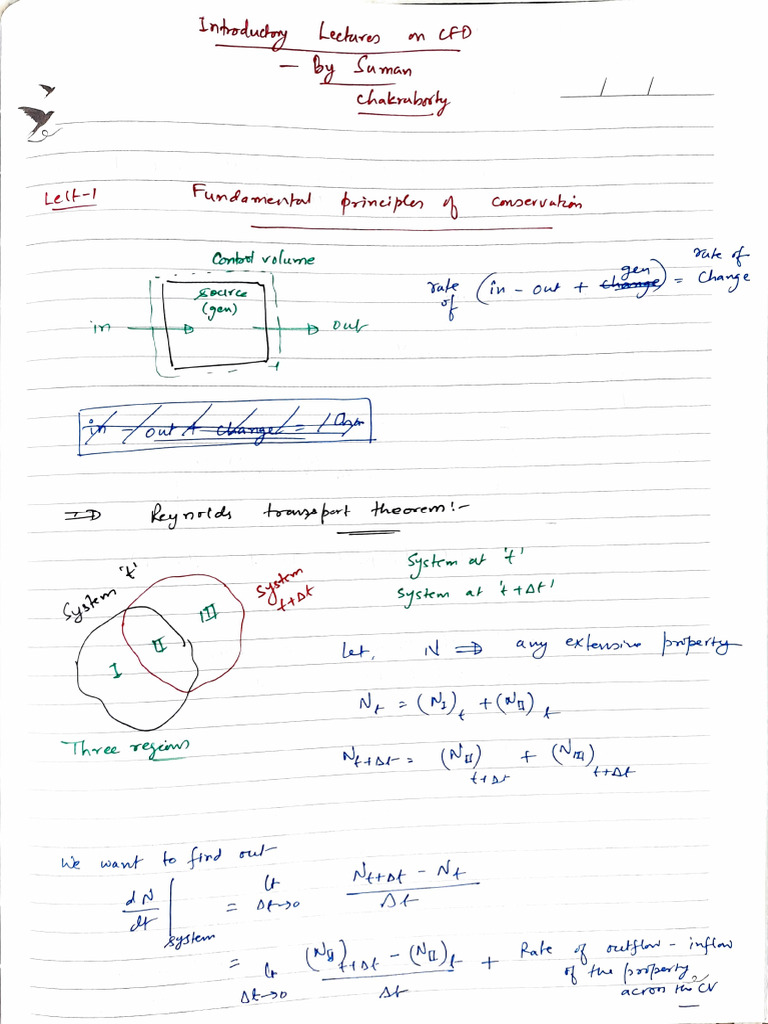 Introductory Lectures on CFD
— By Suman
Chakraborty
/ /
Lect-1 Fundamental principles of conservation
Control volume
source
(gen)
in
out
rate of (in - out + change gen) = rate of change
in - out + change = gen
⇒ Reynolds transport theorem:-
System 't'
System t+Δt
I
II
III
Three regions
System at 't'
System at 't+Δt'
Let, N ⇒ any extensive property
N_t = (N_I)_t + (N_II)_t
N_t+Δt = (N_II)_t+Δt + (N_III)_t+Δt
We want to find out
dN/dt |_system = Lt Δt→0 (N_t+Δt - N_t)/Δt
= Lt Δt→0 ((N_II)_t+Δt - (N_II)_t)/Δt + Rate of outflow - inflow
of the property
across the CV